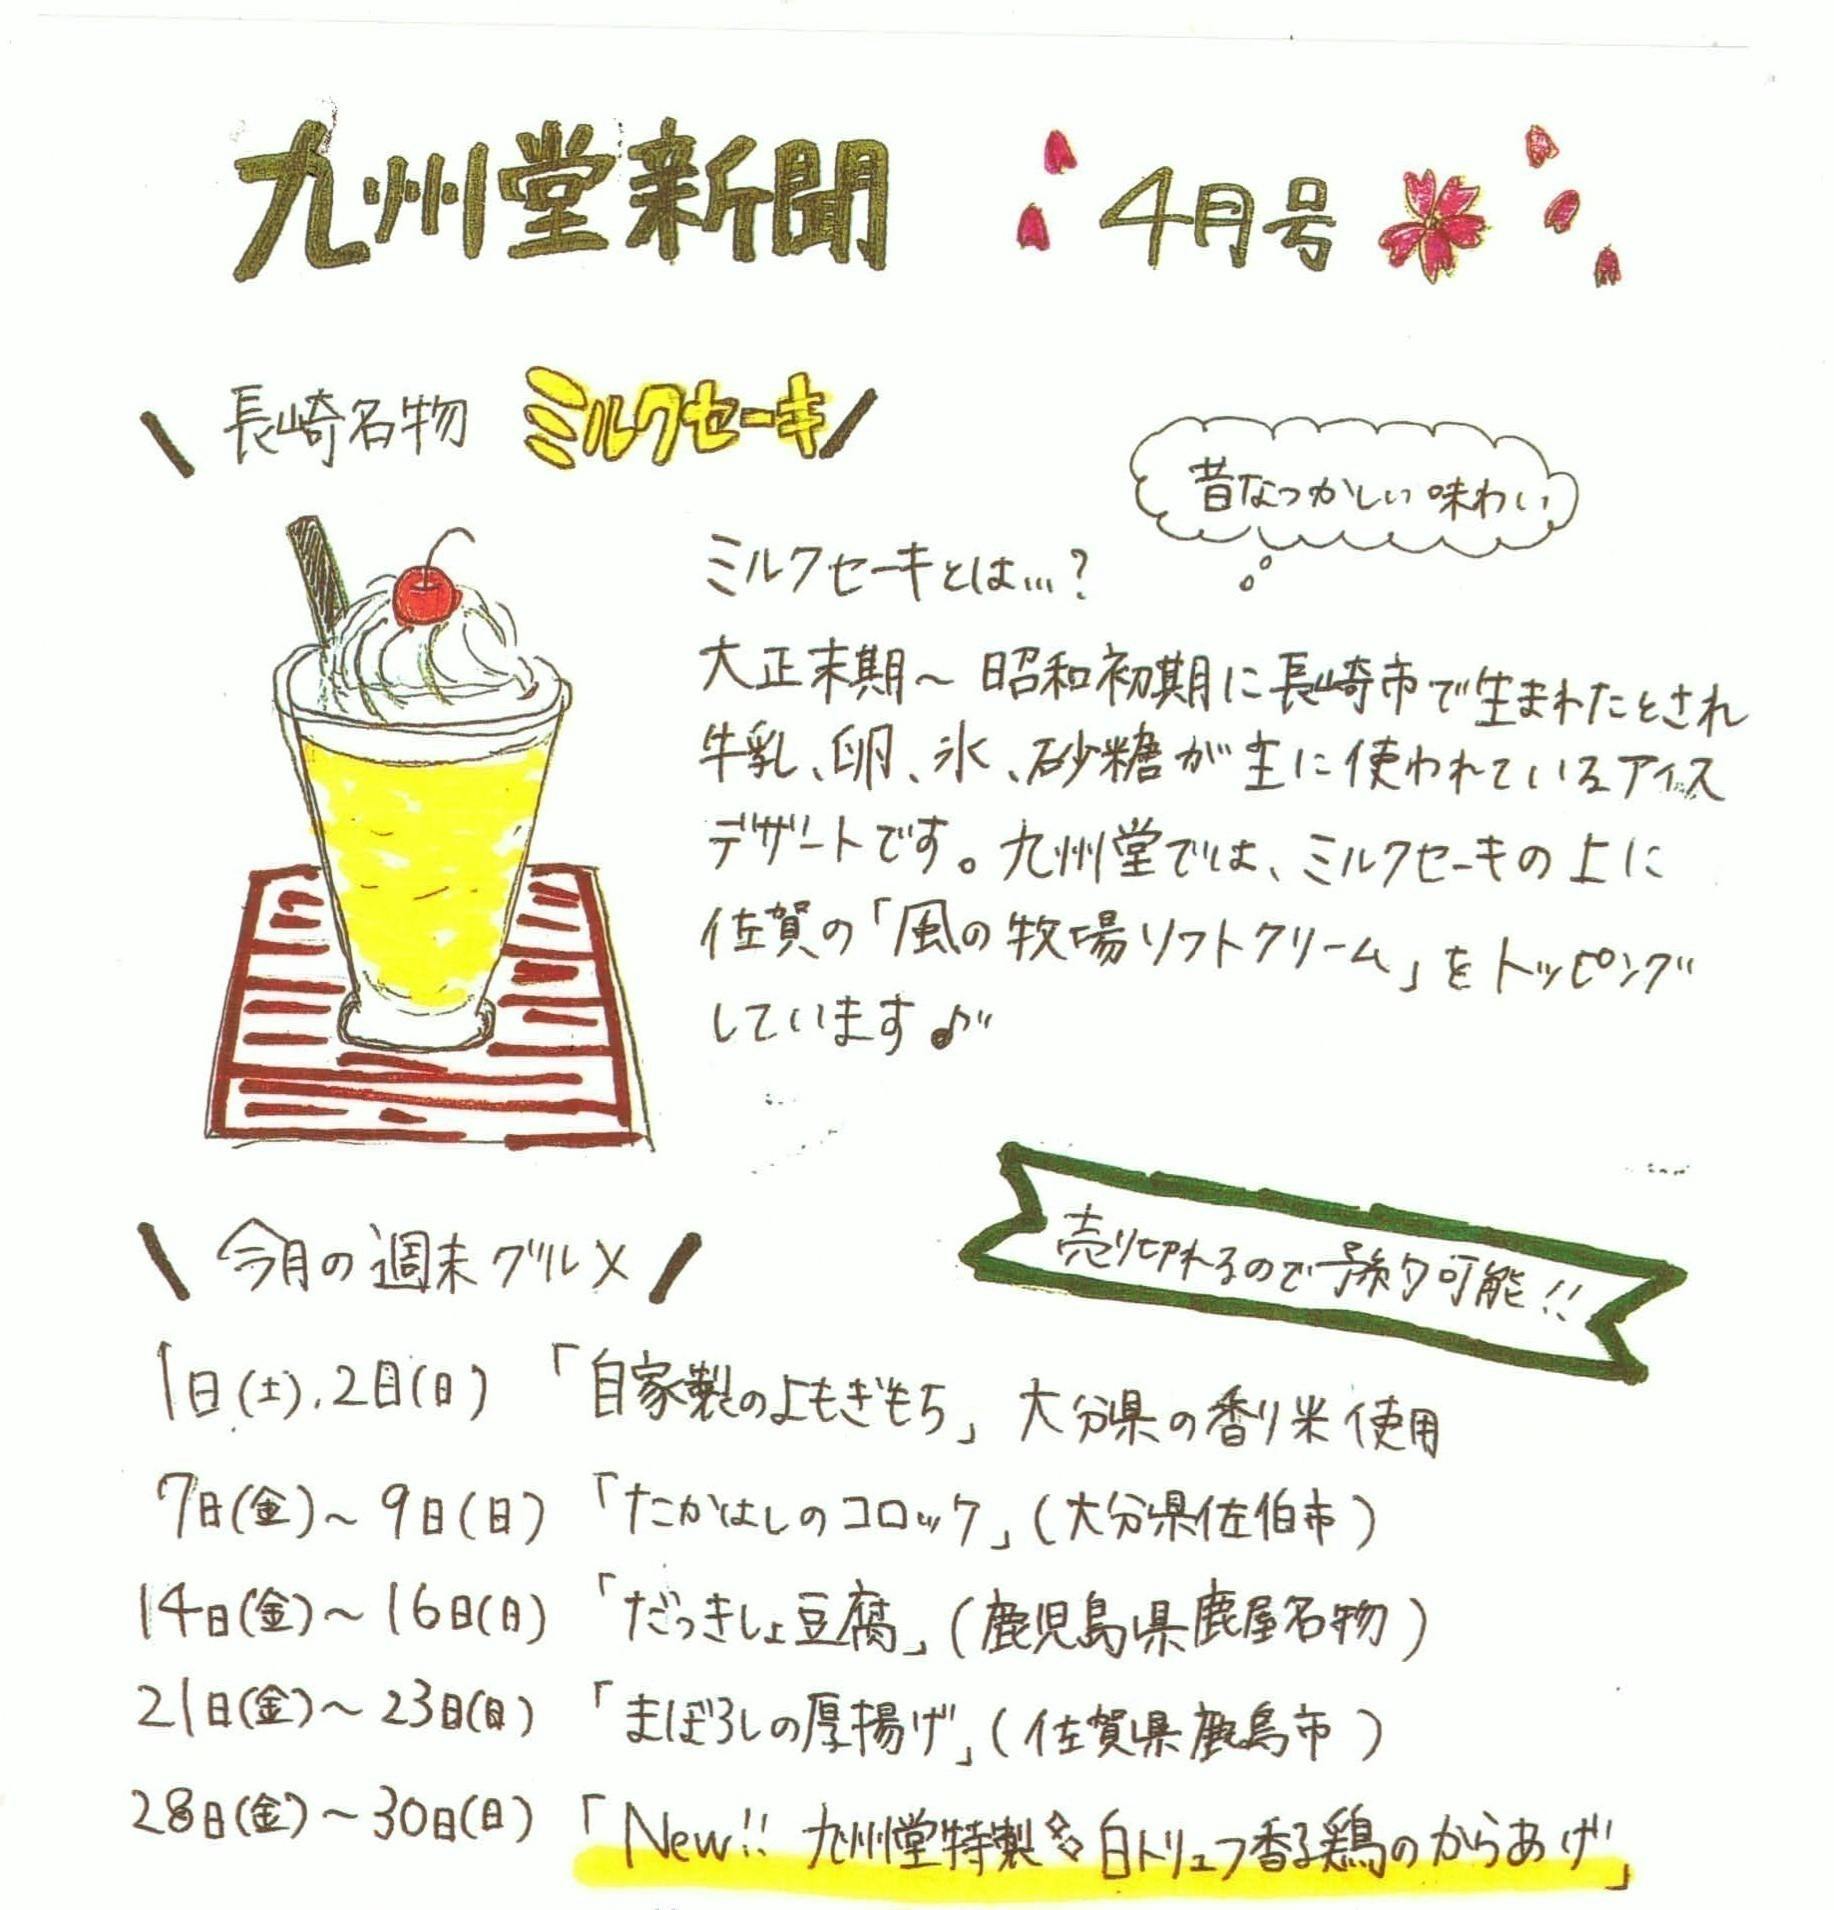 九州堂新聞 4月号
長崎名物 ミルクセーキ
昔なつかしい味わい
ミルクセーキとは…?
大正末期～昭和初期に長崎市で生まれたとされ
牛乳、卵、氷、砂糖が主に使われているアイス
デザートです。九州堂では、ミルクセーキの上に
佐賀の「風の牧場ソフトクリーム」をトッピング
しています♪
売り切れるので予約可能!!
今月の週末グルメ
1日(土)、2日(日) 「自家製のよもぎもち」大分県の香り米使用
7日(金)～9日(日) 「たかはしのコロッケ」(大分県佐伯市)
14日(金)～16日(日) 「だっきしょ豆腐」(鹿児島県鹿屋名物)
21日(金)～23日(日) 「まぼろしの厚揚げ」(佐賀県鹿島市)
28日(金)～30日(日) 「New!! 九州堂特製 白トリュフ香る鶏のからあげ」